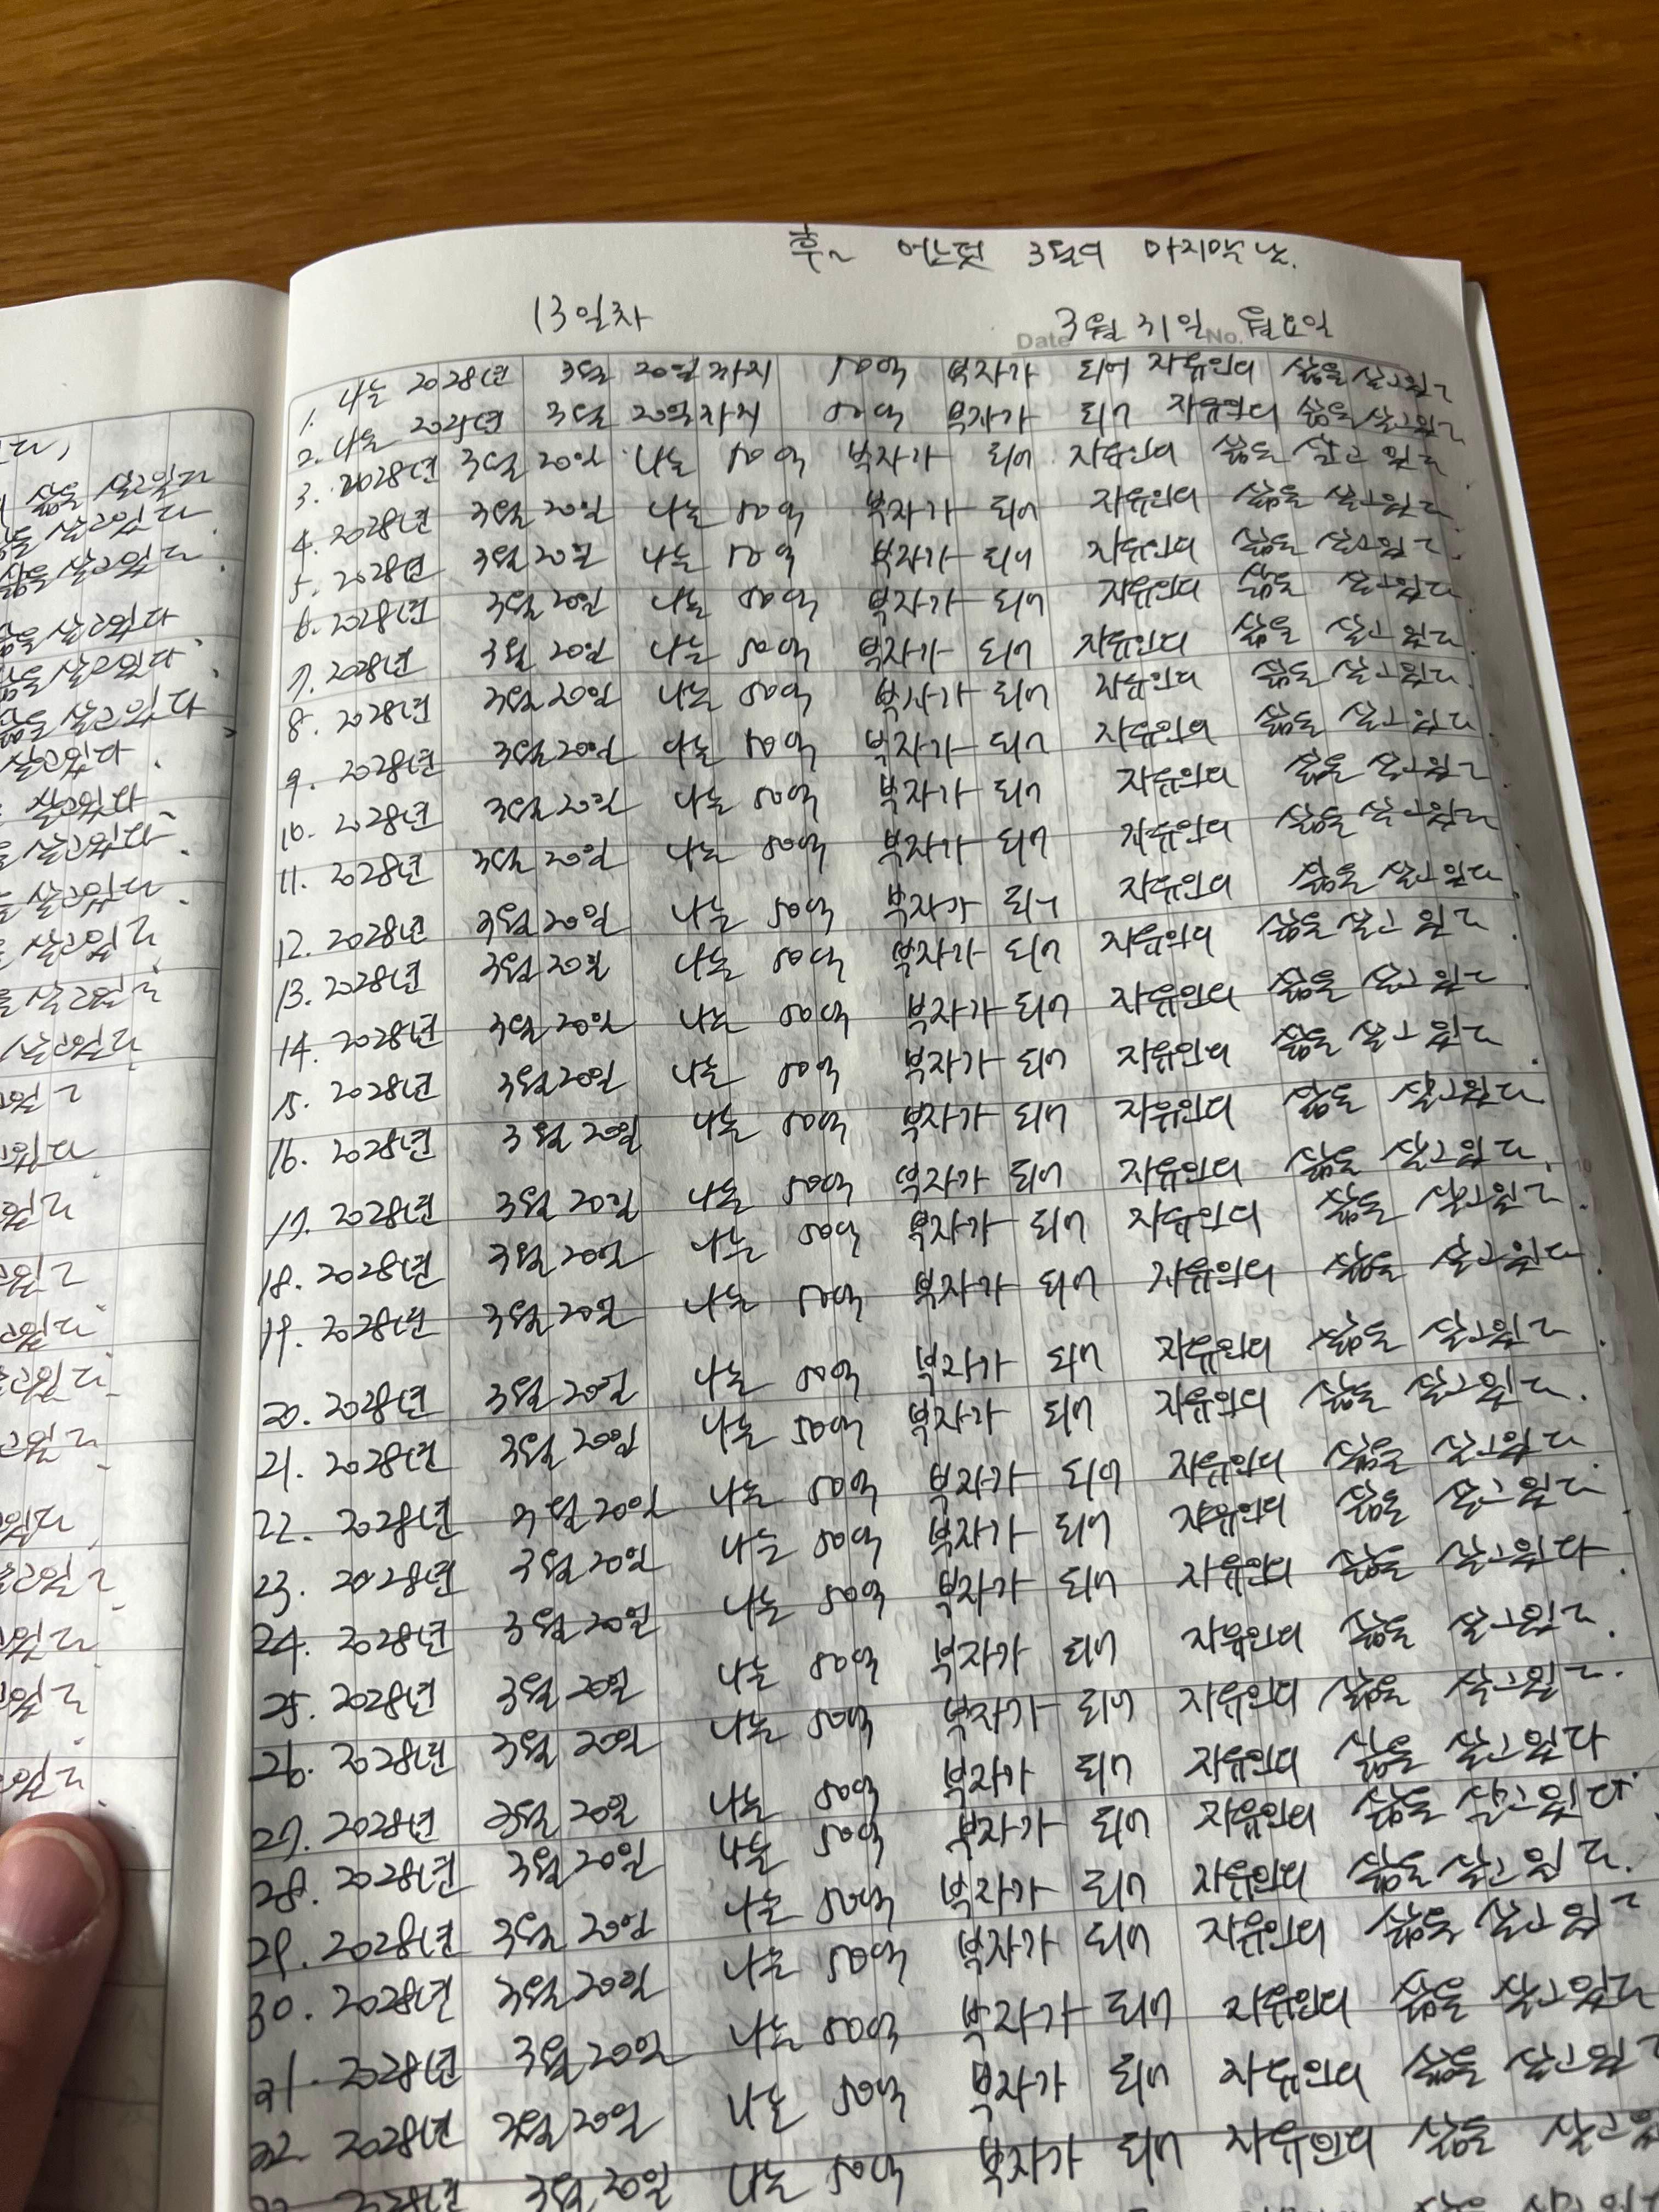 후~ 어느덧 3월의 마지막 날.
13일차
Date 3월 31일 No. 월요일
1. 나는 2028년 3월 20일까지 50억 부자가 되어 자유인의 삶을 살고있다
2. 나는 2028년 3월 20일까지 50억 부자가 되어 자유인의 삶을 살고있다
3. 2028년 3월 20일 나는 50억 부자가 되어 자유인의 삶을 살고 있다
4. 2028년 3월 20일 나는 50억 부자가 되어 자유인의 삶을 살고있다.
5. 2028년 3월 20일 나는 50억 부자가 되어 자유인의 삶을 살고있다.
6. 2028년 3월 20일 나는 50억 부자가 되어 자유인의 삶을 살고있다.
7. 2028년 3월 20일 나는 50억 부자가 되어 자유인의 삶을 살고있다.
8. 2028년 3월 20일 나는 50억 부자가 되어 자유인의 삶을 살고있다.
9. 2028년 3월 20일 나는 50억 부자가 되어 자유인의 삶을 살고있다.
10. 2028년 3월 20일 나는 50억 부자가 되어 자유인의 삶을 살고있다.
11. 2028년 3월 20일 나는 50억 부자가 되어 자유인의 삶을 살고있다.
12. 2028년 3월 20일 나는 50억 부자가 되어 자유인의 삶을 살고있다.
13. 2028년 3월 20일 나는 50억 부자가 되어 자유인의 삶을 살고 있다.
14. 2028년 3월 20일 나는 50억 부자가 되어 자유인의 삶을 살고 있다.
15. 2028년 3월 20일 나는 50억 부자가 되어 자유인의 삶을 살고 있다.
16. 2028년 3월 20일 나는 50억 부자가 되어 자유인의 삶을 살고있다.
17. 2028년 3월 20일 나는 50억 부자가 되어 자유인의 삶을 살고있다.
18. 2028년 3월 20일 나는 50억 부자가 되어 자유인의 삶을 살고있다.
19. 2028년 3월 20일 나는 50억 부자가 되어 자유인의 삶을 살고있다.
20. 2028년 3월 20일 나는 50억 부자가 되어 자유인의 삶을 살고있다.
21. 2028년 3월 20일 나는 50억 부자가 되어 자유인의 삶을 살고있다.
22. 2028년 3월 20일 나는 50억 부자가 되어 자유인의 삶을 살고있다.
23. 2028년 3월 20일 나는 50억 부자가 되어 자유인의 삶을 살고있다.
24. 2028년 3월 20일 나는 50억 부자가 되어 자유인의 삶을 살고있다.
25. 2028년 3월 20일 나는 50억 부자가 되어 자유인의 삶을 살고있다.
26. 2028년 3월 20일 나는 50억 부자가 되어 자유인의 삶을 살고있다.
27. 2028년 3월 20일 나는 50억 부자가 되어 자유인의 삶을 살고있다
28. 2028년 3월 20일 나는 50억 부자가 되어 자유인의 삶을 살고있다.
29. 2028년 3월 20일 나는 50억 부자가 되어 자유인의 삶을 살고있다.
30. 2028년 3월 20일 나는 50억 부자가 되어 자유인의 삶을 살고있다
31. 2028년 3월 20일 나는 50억 부자가 되어 자유인의 삶을 살고있다
32. 2028년 3월 20일 나는 50억 부자가 되어 자유인의 삶을 살고있다
33. 2028년 3월 20일 나는 50억 부자가 되어 자유인의 삶을 살고있